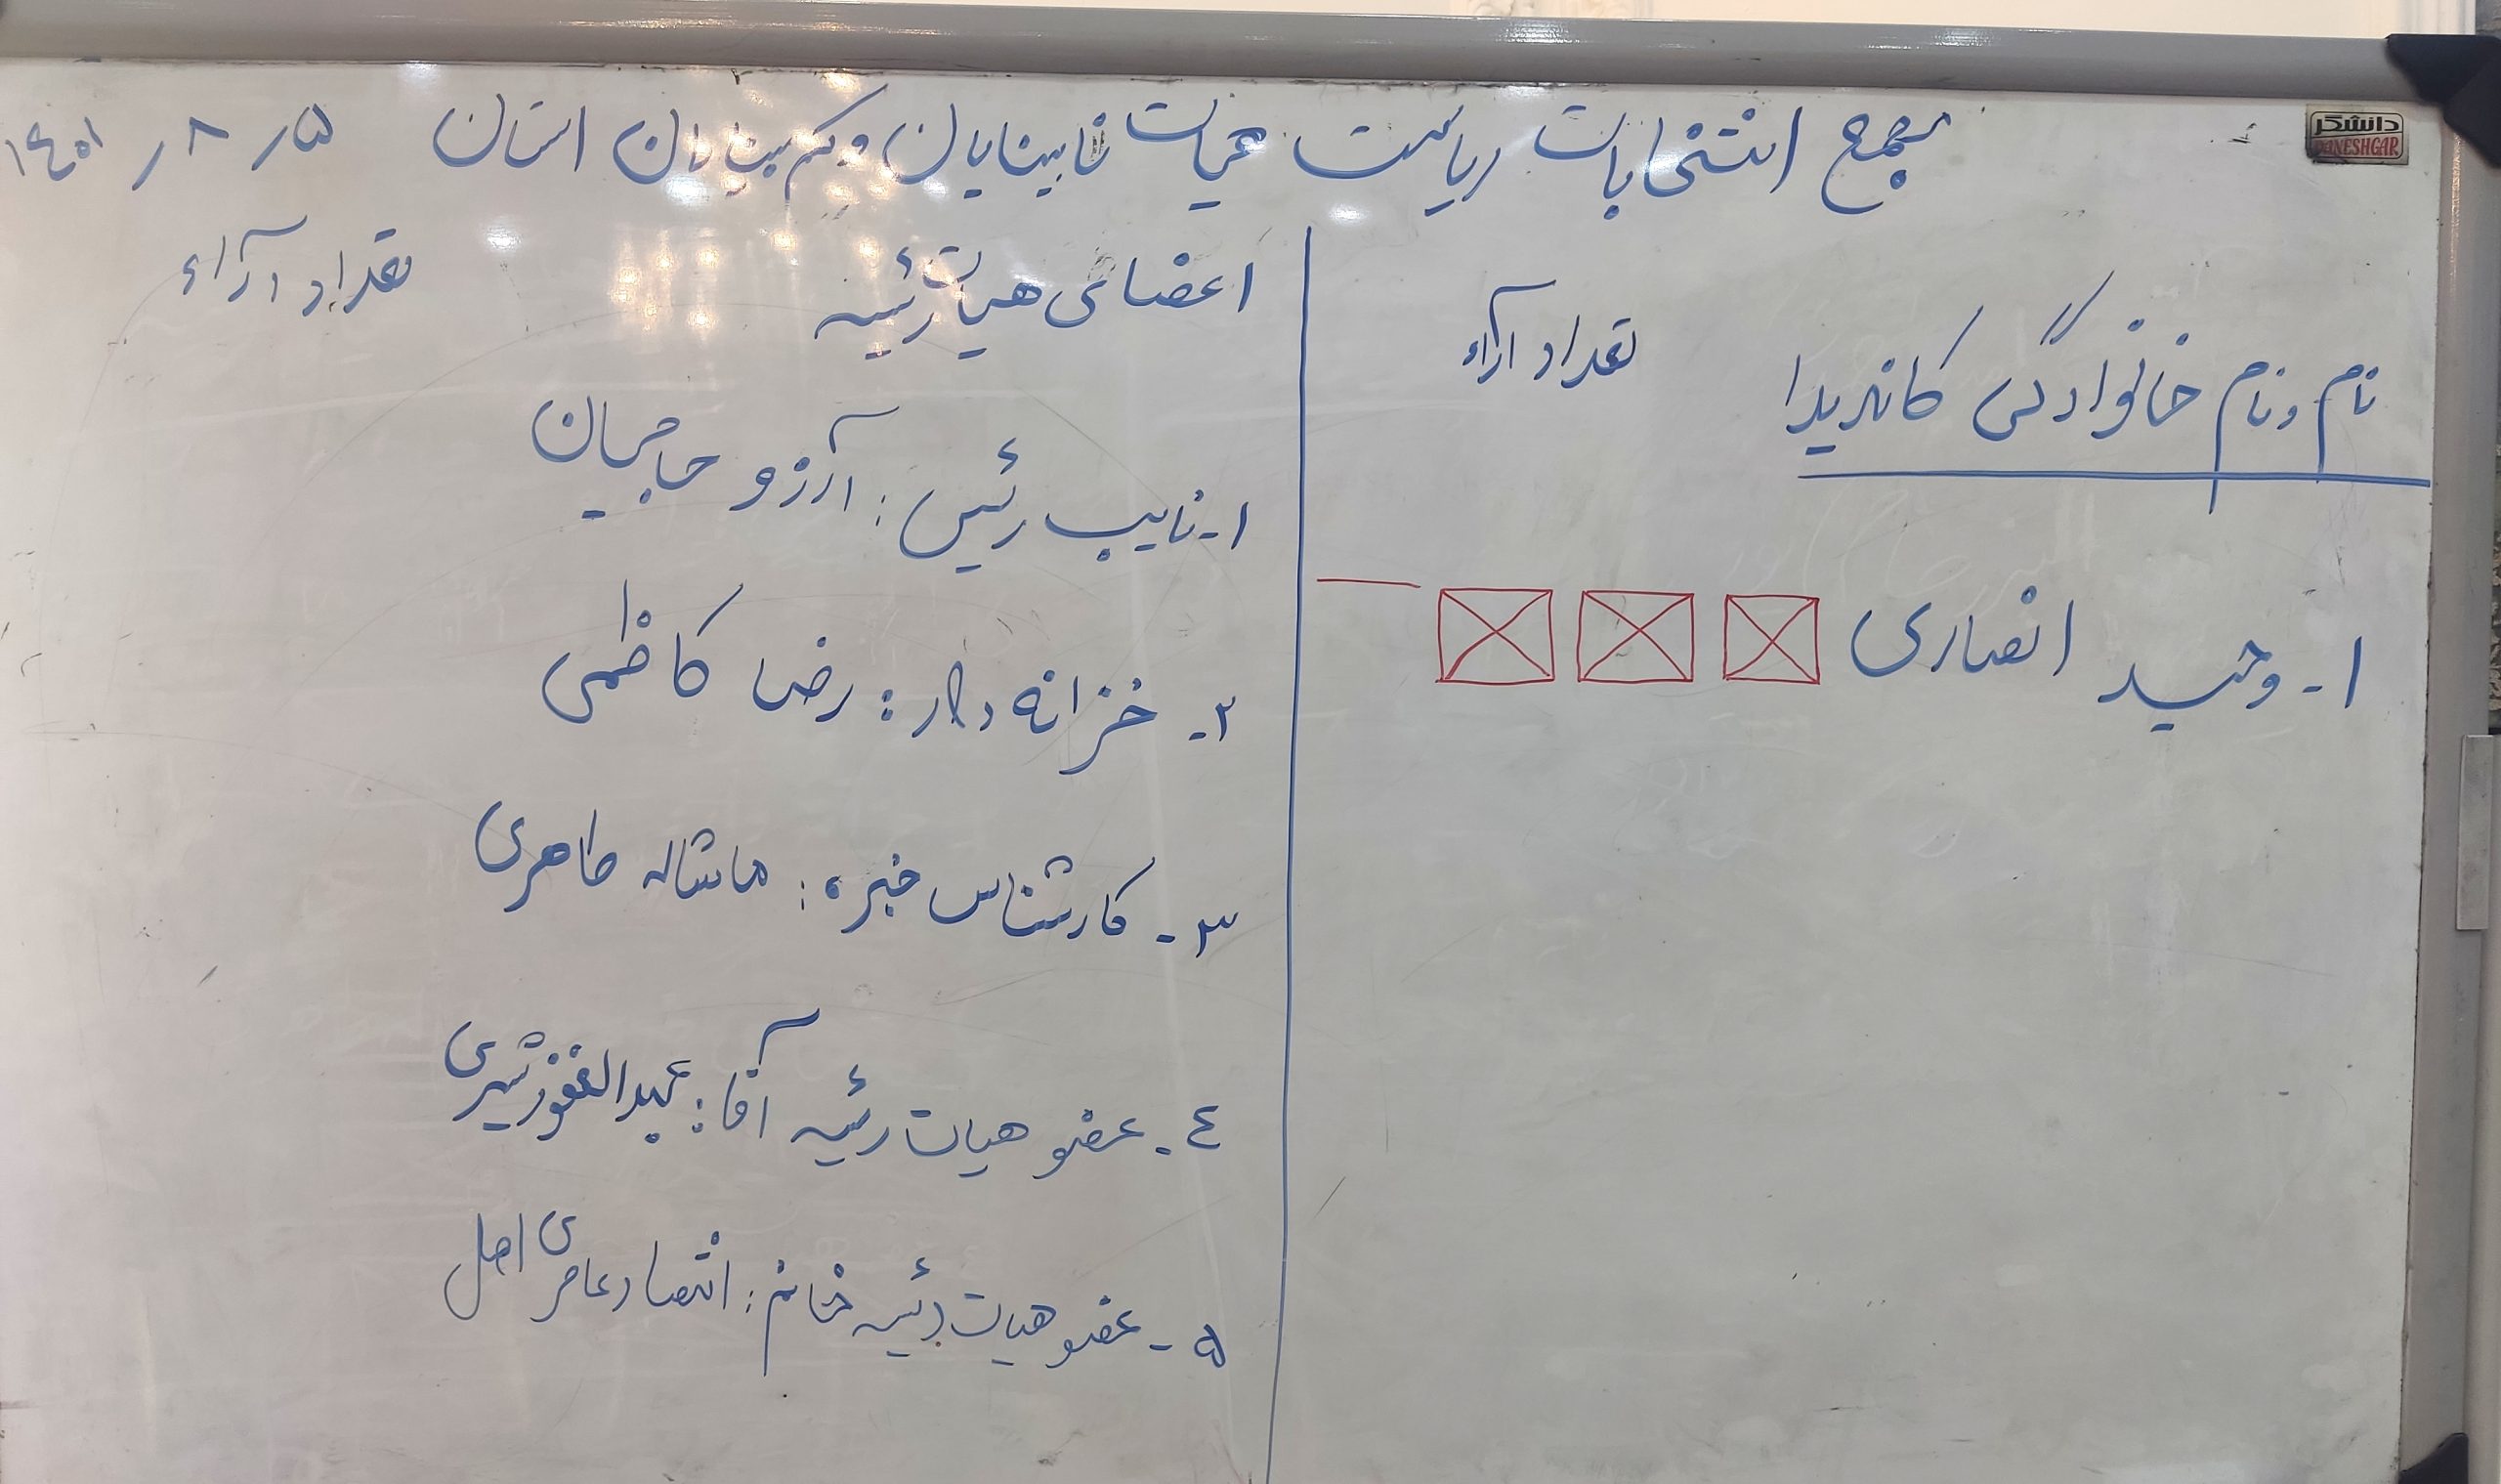 مجمع انتخابات ریاست هیات نابینایان و کم بینایان استان ۱۴۰۱/۸/۵
دانشگر
DANESHGAR
نام و نام خانوادگی کاندیدا تعداد آراء
۱- وحید انصاری
اعضای هیات رئیسه تعداد آراء
۱- نایب رئیس: آرزو حاجیان
۲- خزانه دار: رضا کاظمی
۳- کارشناس خبره: ماشاله طاهری
٤- عضو هیات رئیسه آقا: عبدالغفور شیری
۵- عضو هیات رئیسه خانم: انتصار عامری اصل